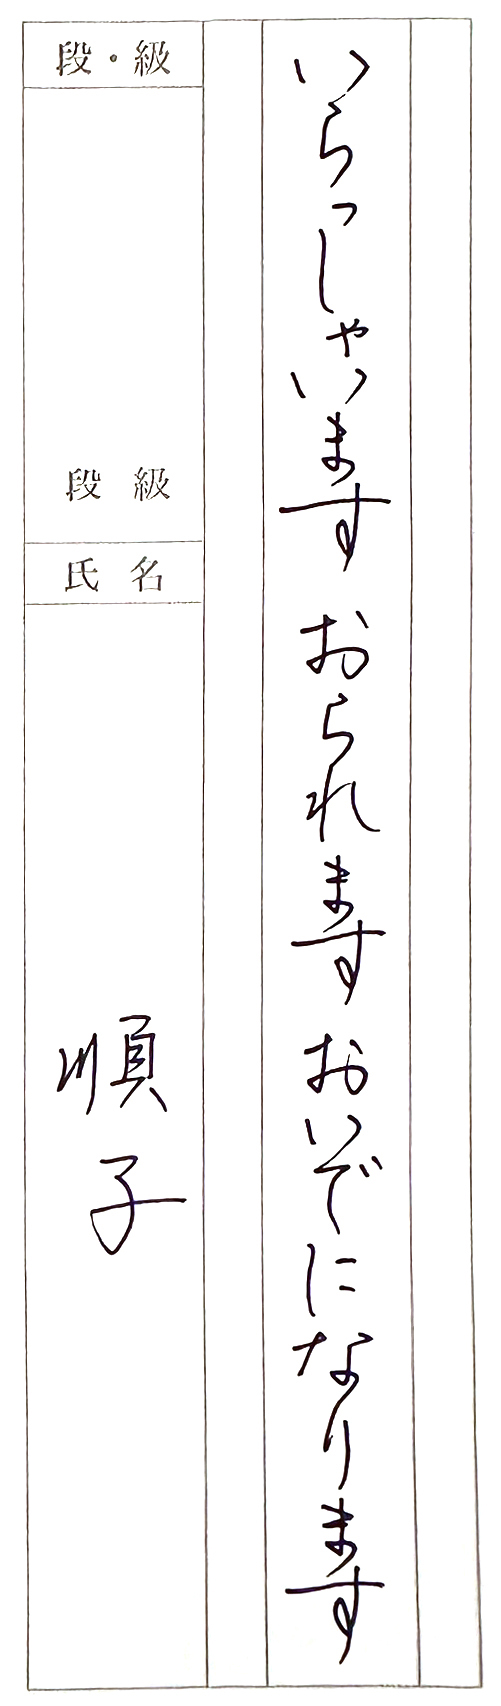 いらっしゃいます おられます おいでになります
段・級
段 級
氏 名
順子